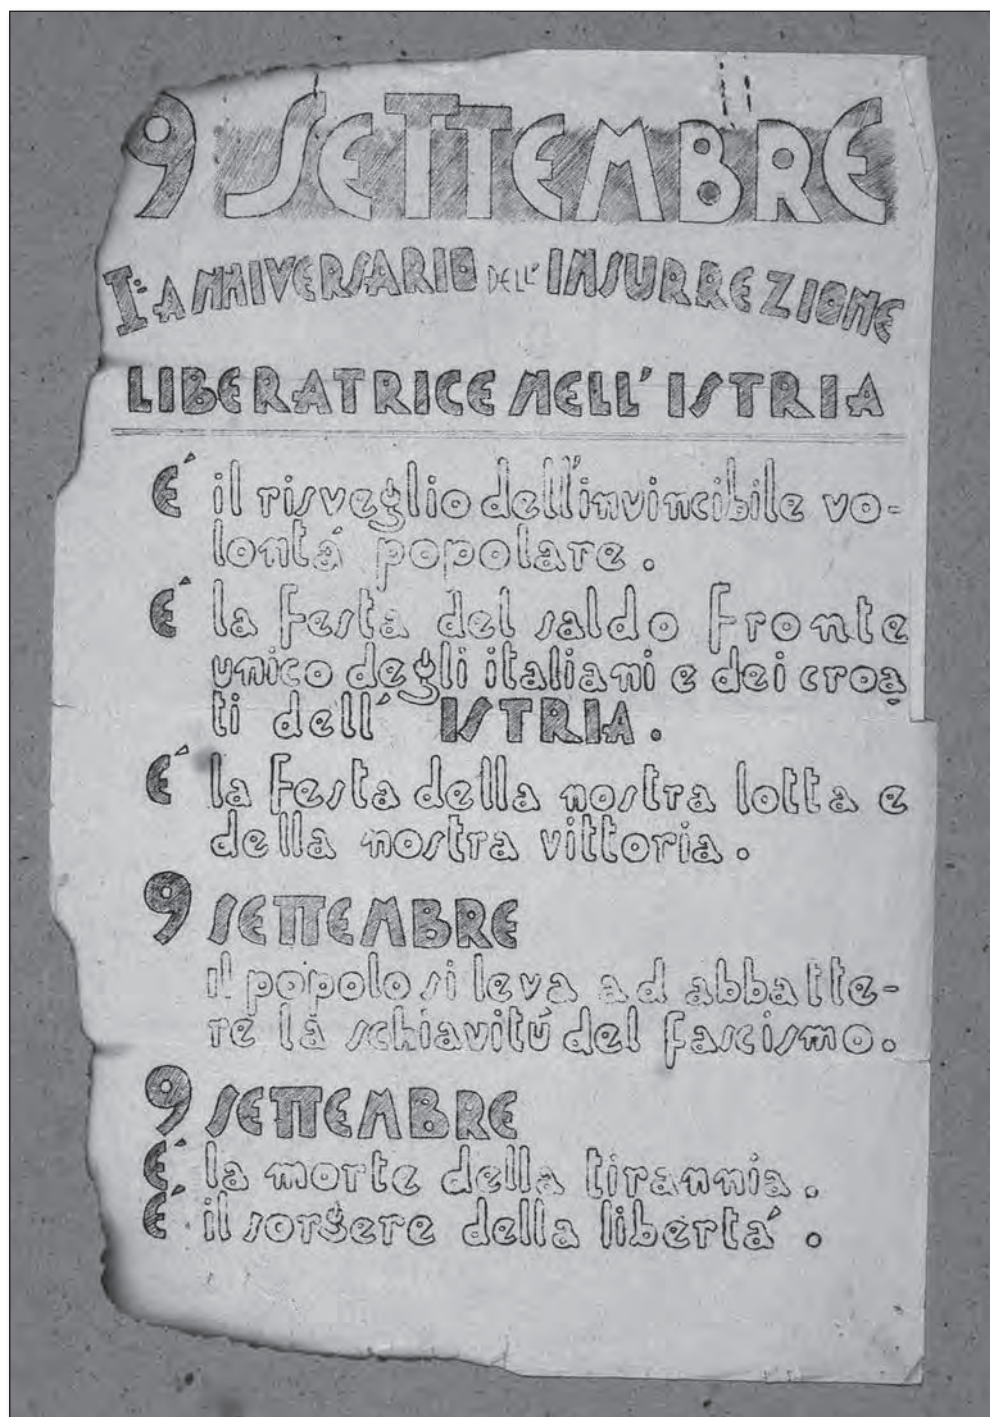 9 SETTEMBRE
I° ANNIVERSARIO DELL' INSURREZIONE
LIBERATRICE NELL' ISTRIA
É il risveglio dell'invincibile vo-
lontá popolare.
É la festa del saldo fronte
unico degli italiani e dei croa
ti dell' ISTRIA.
É la festa della nostra lotta e
della nostra vittoria.
9 SETTEMBRE
il popolo si leva ad abbatte-
re la schiavitú del fascismo.
9 SETTEMBRE
É la morte della tirannia.
É il sorgere della libertá.